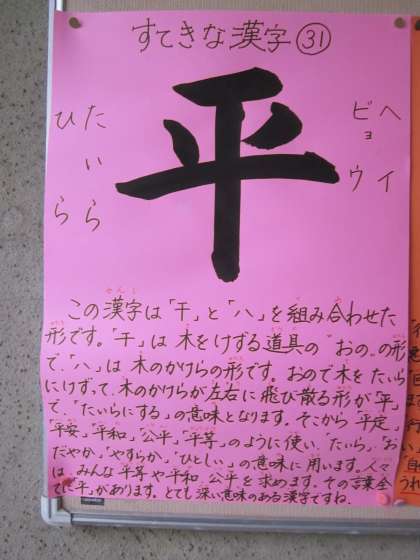 すてきな漢字㉛
平
ヘイ
ビョウ
たいら
ひら
この漢字は「干」と「八」を組み合わせた
形です。「干」は木をけずる道具の"おの"の形
で、「八」は木のかけらの形です。おので木をたいら
にけずって、木のかけらが左右に飛び散る形が「平」
で「たいらにする」の意味となります。そこから「平定」
「平安」「平和」「公平」「平等」のように使い、"たいら、"お
だやか、"やすらか、"ひとしい"の意味に用います。人々
は、みんな平等や平和、公平を求めます。その言葉全
てに「平」があります。とても深い意味のある漢字ですね。